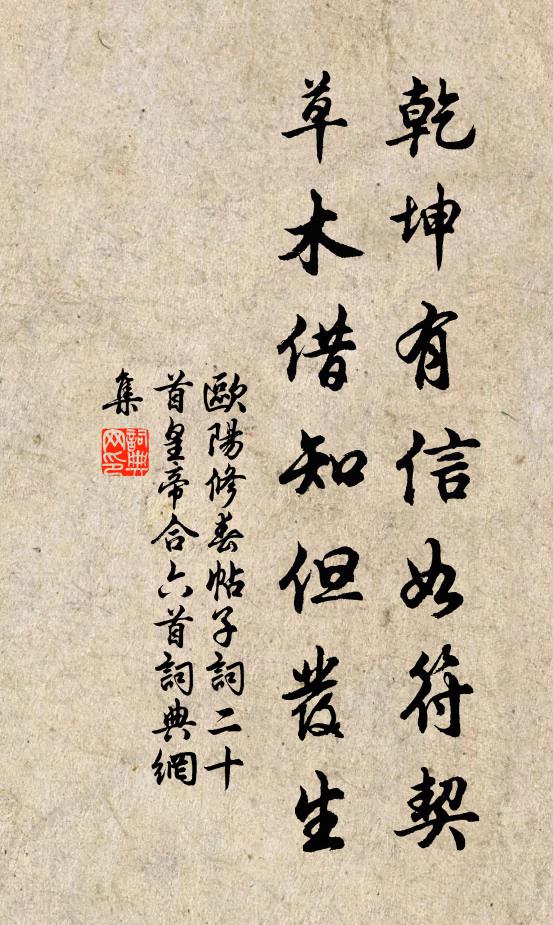 乾坤有信如符契
草木借知但發生
歐陽修春帖子詞二十
首皇帝合六首詞典網
集
詞典
网印